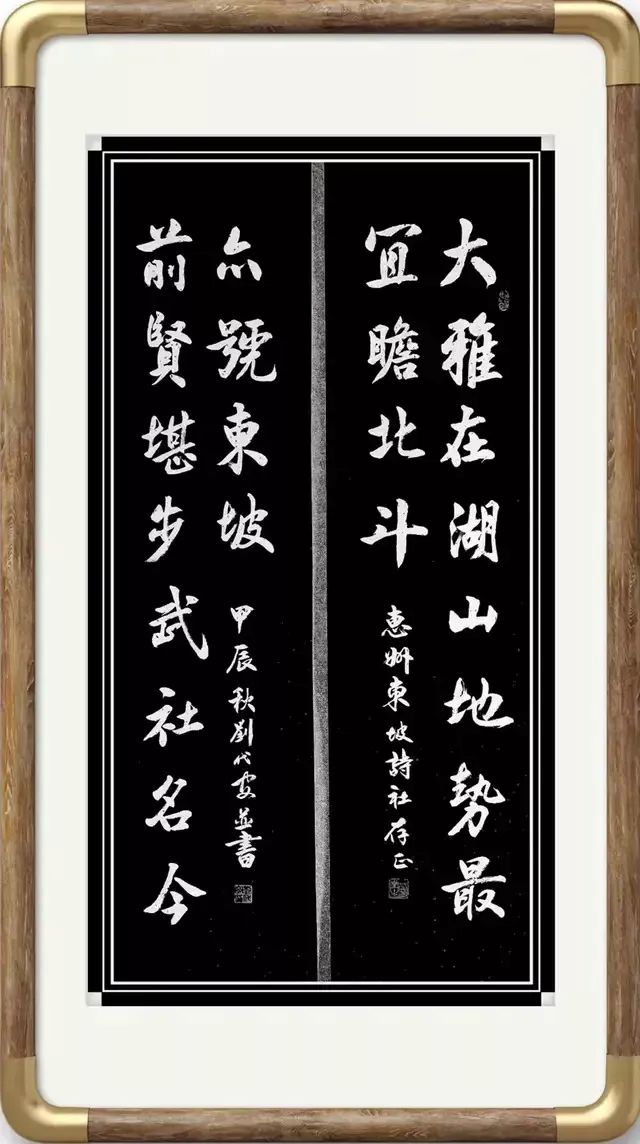 大雅在湖山地勢最
宜瞻北斗
惠州東坡詩社存正
前賢堪步武社名今
亦號東坡
甲辰秋劉代安並書